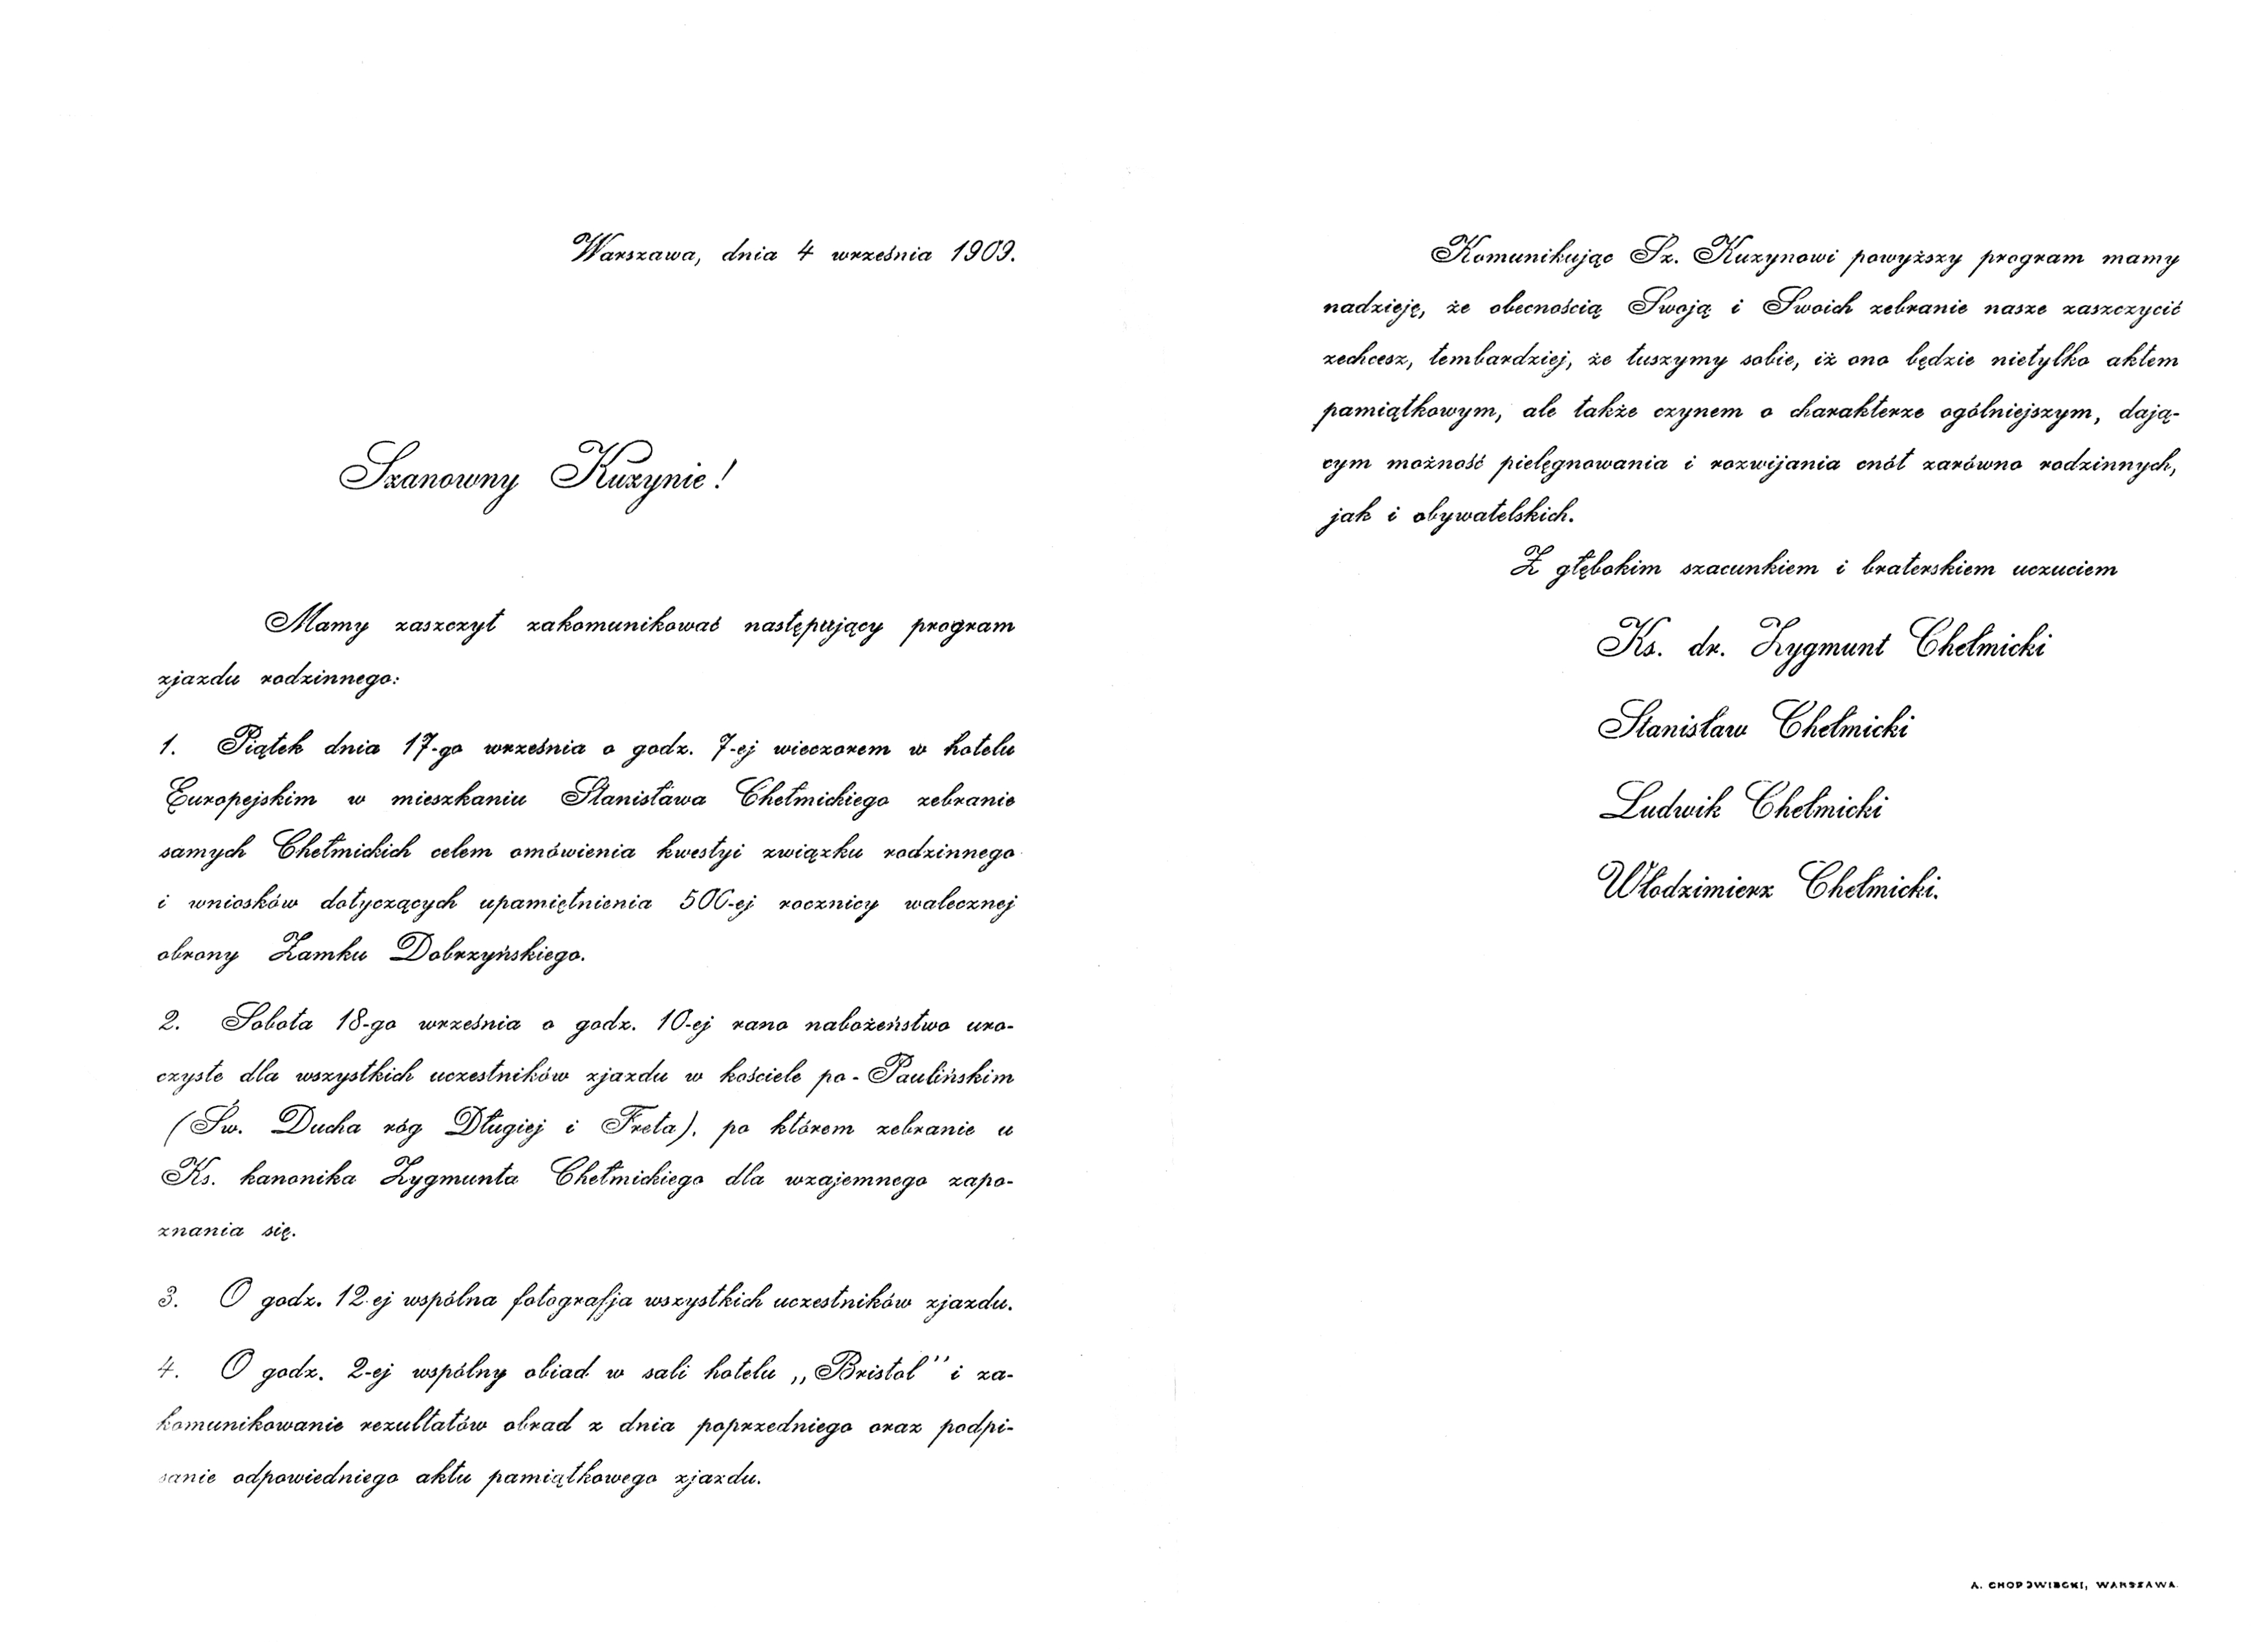 Warszawa, dnia 4 września 1909.
Szanowny Kuzynie!
Mamy zaszczyt zakomunikować następujący program
zjazdu rodzinnego:
1. Piątek dnia 17-go września o godz. 7-ej wieczorem w hotelu
Europejskim w mieszkaniu Stanisława Chełmickiego zebranie
samych Chełmickich celem omówienia kwestyi związku rodzinnego
i wniosków dotyczących upamiętnienia 500-ej rocznicy walecznej
obrony Zamku Dobrzyńskiego.
2. Sobota 18-go września o godz. 10-ej rano nabożeństwo uro-
czyste dla wszystkich uczestników zjazdu w kościele po-Paulińskim
(Św. Ducha róg Długiej i Freta), po którem zebranie u
Ks. kanonika Zygmunta Chełmickiego dla wzajemnego zapo-
znania się.
3. O godz. 12-ej wspólna fotografja wszystkich uczestników zjazdu.
4. O godz. 2-ej wspólny obiad w sali hotelu „Bristol" i za-
komunikowanie rezultatów obrad z dnia poprzedniego oraz podpi-
sanie odpowiedniego aktu pamiątkowego zjazdu.
Komunikując Sz. Kuzynowi powyższy program mamy
nadzieję, że obecnością Swoją i Swoich zebranie nasze zaszczycić
zechcesz, tembardziej, że tuszymy sobie, iż ono będzie nietylko aktem
pamiątkowym, ale także czynem o charakterze ogólniejszym, dają-
cym możność pielęgnowania i rozwijania cnót zarówno rodzinnych,
jak i obywatelskich.
Z głębokim szacunkiem i braterskiem uczuciem
Ks. dr. Zygmunt Chełmicki
Stanisław Chełmicki
Ludwik Chełmicki
Włodzimierz Chełmicki.
A. CHODOWIECKI, WARSZAWA.